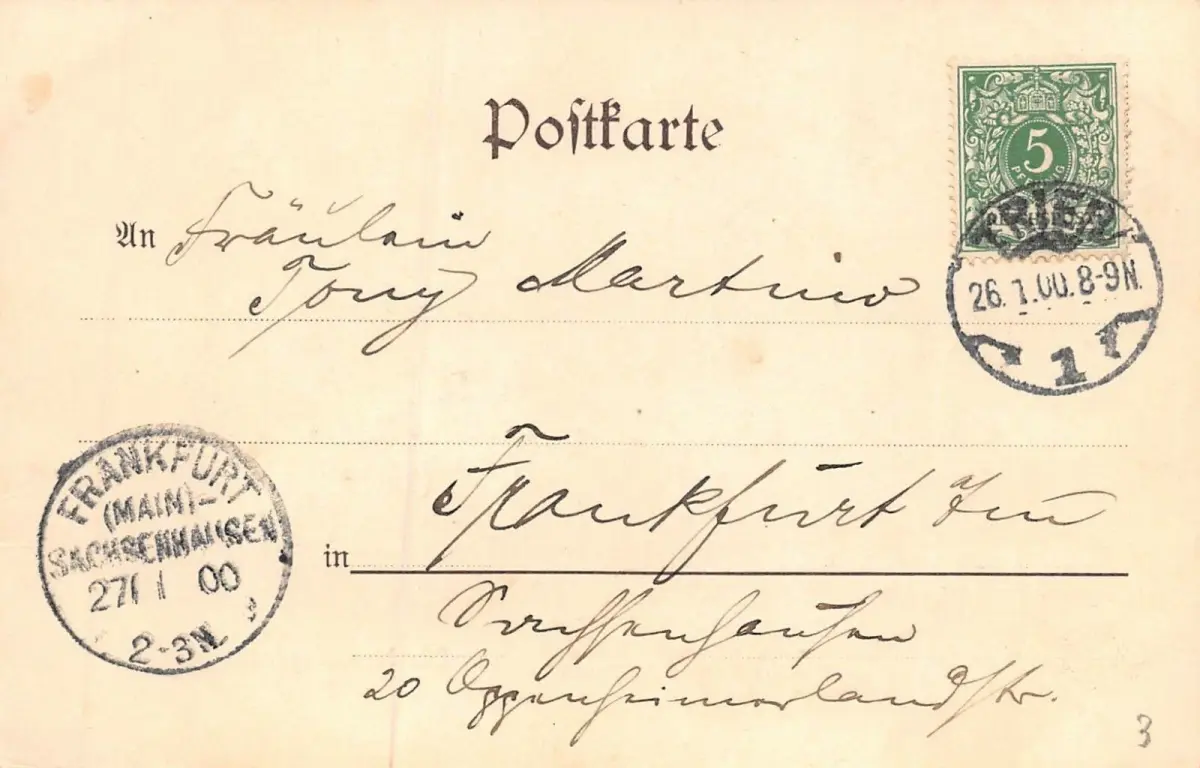 Postkarte
5
PFENNIG
REICHSPOST
TRIER
26. 1.00. 8-9N.
1
An Fräulein
Tony Martino
FRANKFURT
(MAIN)-
SACHSENHAUSEN
27 1 00
2-3N.
in Frankfurt
Sachsenhausen
20 Oppenheimerlandstr.
3